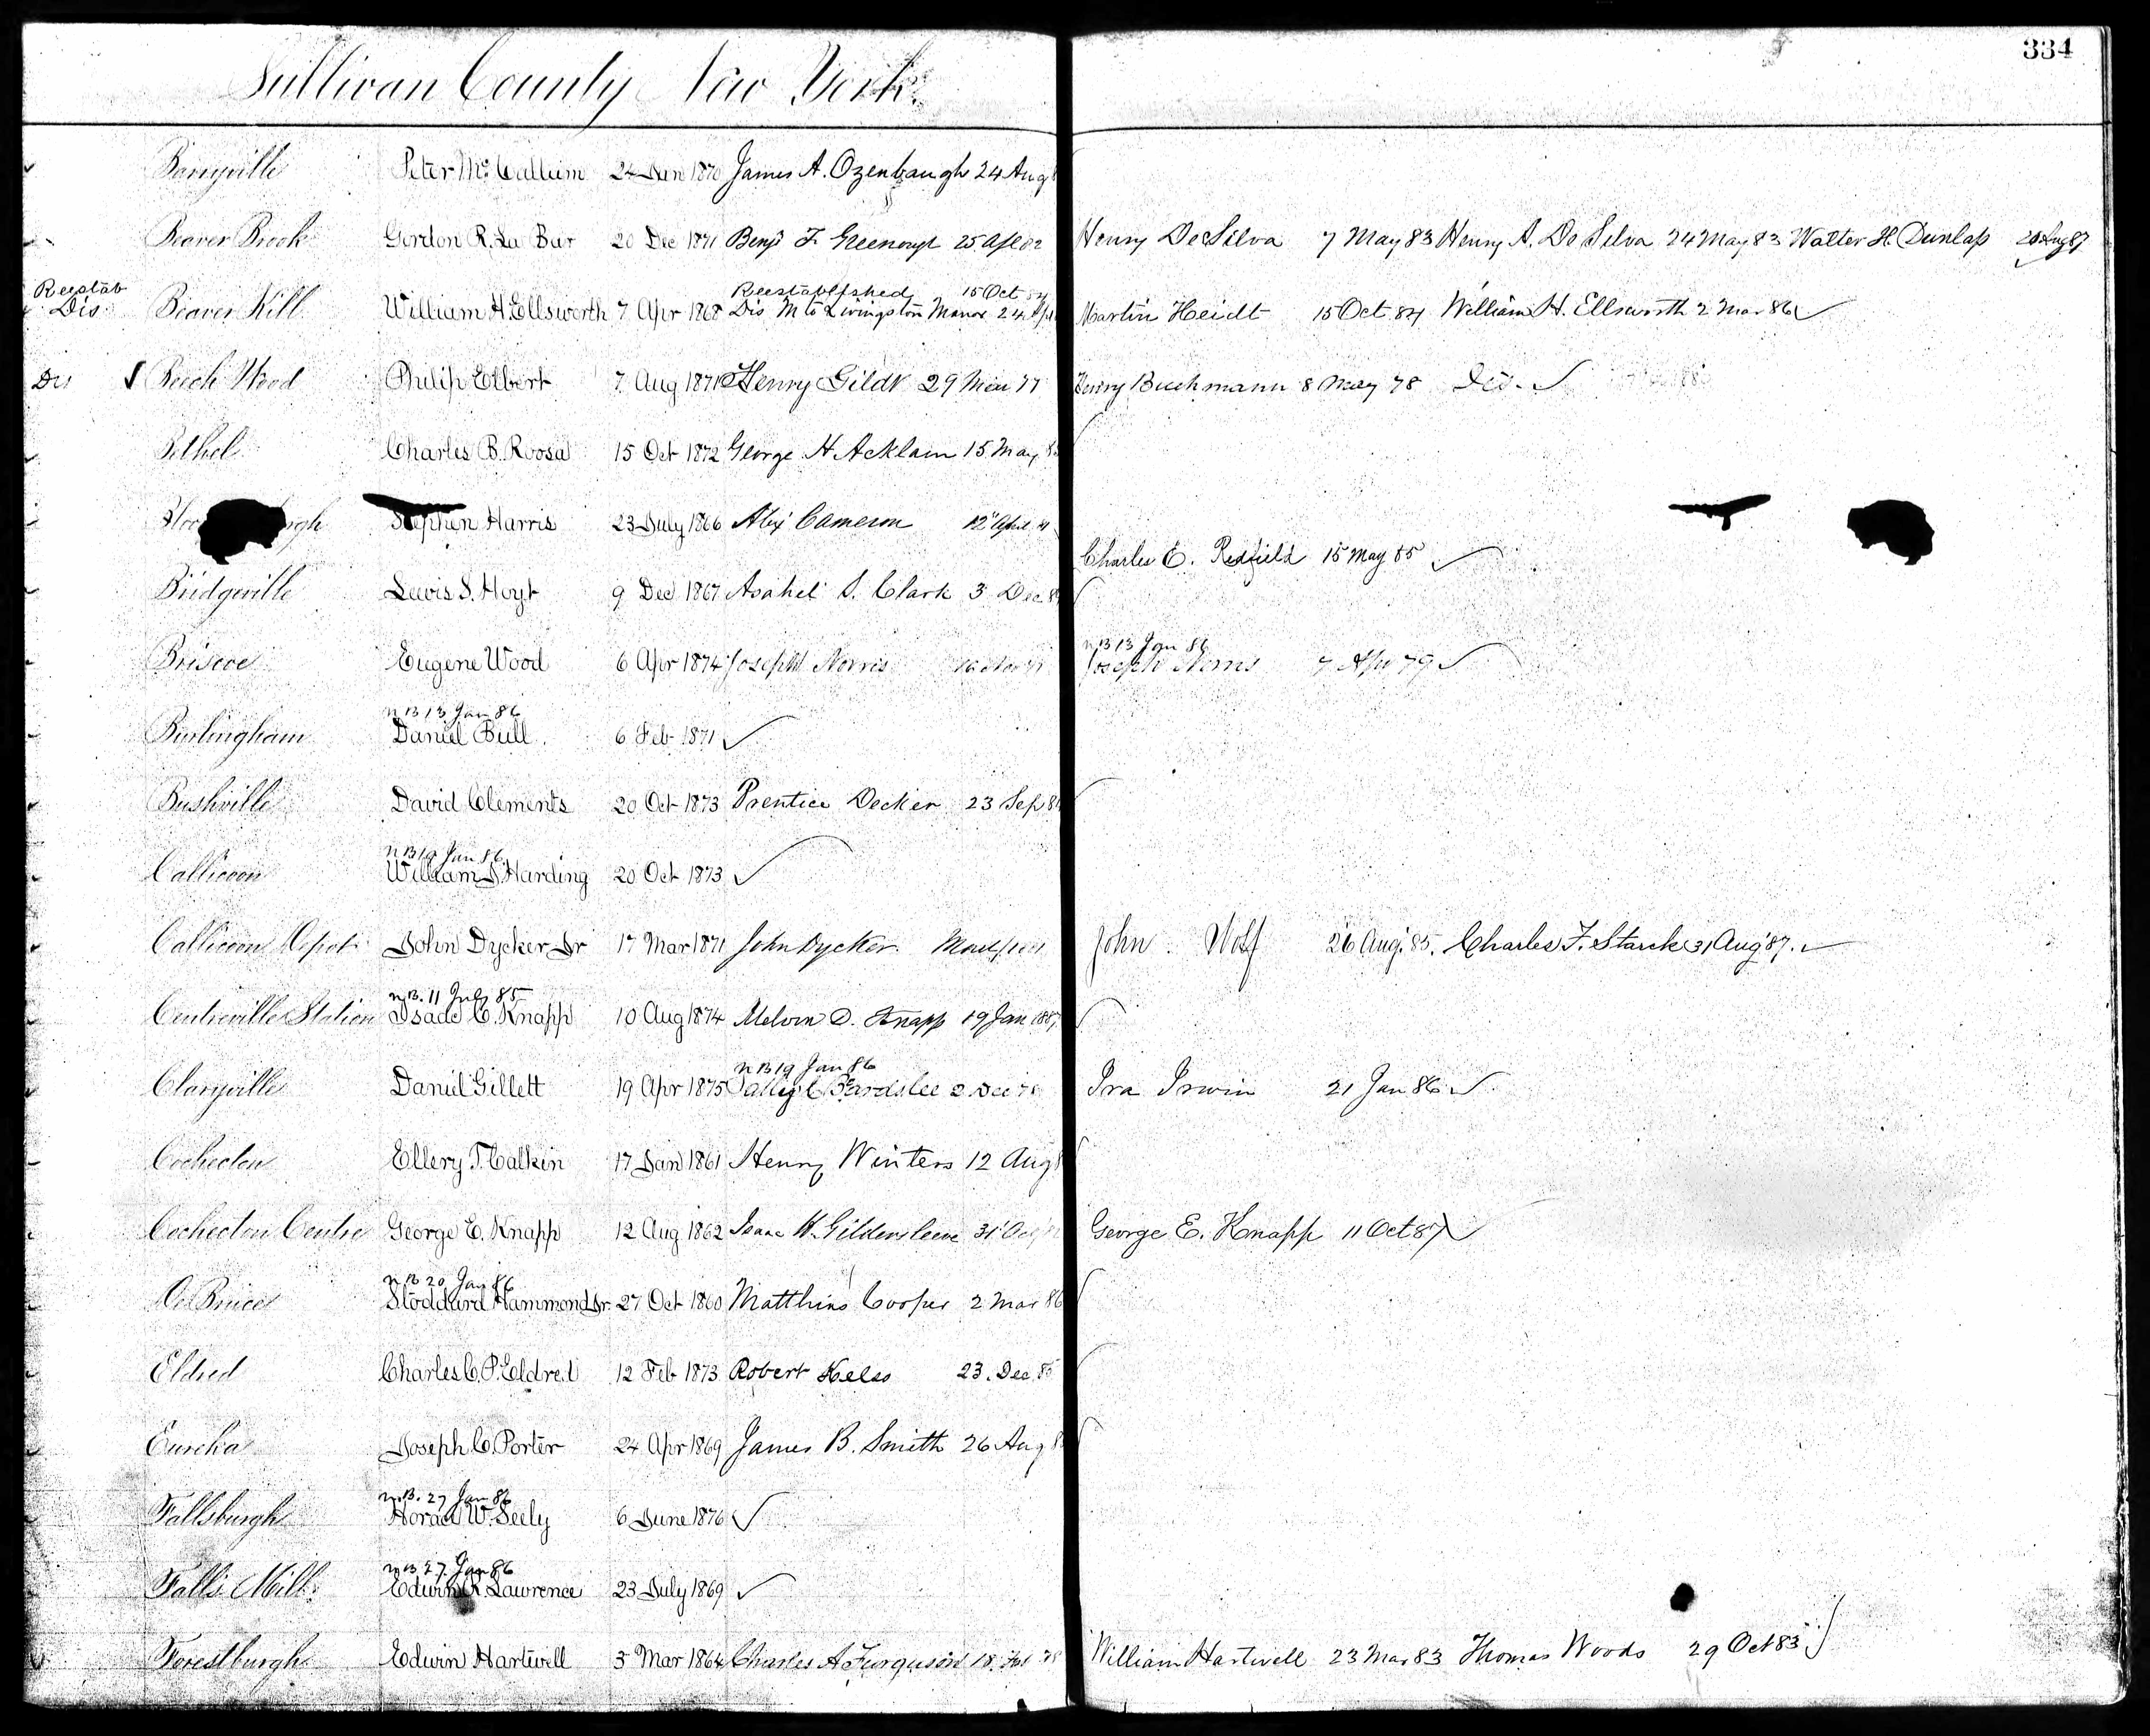 334
Sullivan County New York.
Barryville Peter Mc Callum 24 Jun 1870 James A. Ozenbaugh 24 Aug
Beaver Brook Gordon R. La Bar 20 Dec 1871 Benj F. Greenough 25 Apl 82 Henry De Silva 7 May 83 Henry A. De Silva 24 May 83 Walter H. Dunlap Aug 87
Reestab Reestablished 15 Oct 84
Dis Beaver Kill William H. Ellsworth 7 Apr 1868 Dis M to Livingston Manor 24 Martin Heidt 15 Oct 84 William H. Ellsworth 2 Mar 86
Dis Beech Wood Philip Elbert 7 Aug 1871 Henry Gildt 29 77 Henry Buchmann 8 May 78 Dis.
Bethel Charles B. Roosa 15 Oct 1872 George H Acklam 15 May
Stephen Harris 23 July 1866 Alex Cameron 12 April
Charles E. Redfield 15 May 85
Bridgeville Lewis S. Hoyt 9 Dec 1867 Asahel S. Clark 3 Dec
n B 13 Jan 86
Briscoe Eugene Wood 6 Apr 1874 Joseph Norris Joseph Norris 7 Apr 79
n B 13 Jan 86
Burlingham Daniel Bull. 6 Feb 1871
Bushville David Clements 20 Oct 1873 Prentice Decker 23 Sep
n B 19 Jan 86
Callicoon William J. Harding 20 Oct 1873
Callicoon Depot John Dycker Jr 17 Mar 1871 John Dycker John Wolf 26 Aug. 85. Charles F. Starck 31 Aug 87.
n B. 11 July 85
Centreville Station Isaac C. Knapp 10 Aug 1874 Melvin D. Knapp 19 Jan 1887
n B 19 Jan 86
Claryville Daniel Gillett 19 Apr 1875 C Beardslee 2 Dec Ira Irwin 21 Jan 86
Cochecton Ellery T. Calkin 17 Jan 1861 Henry Winters 12 Aug
Cochecton Centre George E. Knapp 12 Aug 1862 Isaac W. Gildersleeve 31 George E. Knapp 11 Oct 87
n B 20 Jan 86
De Bruce Stoddard Hammond Jr. 27 Oct 1860 Matthias Cooper 2 Mar 86
Eldred Charles C. P. Eldred 12 Feb 1873 Robert Kelso 23. Dec. 85
Eureka Joseph C. Porter 24 Apr 1869 James B. Smith 26 Aug
n B. 27 Jan 86
Fallsburgh Horace W. Seely 6 June 1876
n B 27 Jan 86
Falls Mill Edwin R. Lawrence 23 July 1869
Forestburgh Edwin Hartwell 3 Mar 1864 Charles A Furguson 18 William Hartwell 23 Mar 83 Thomas Woods 29 Oct 83